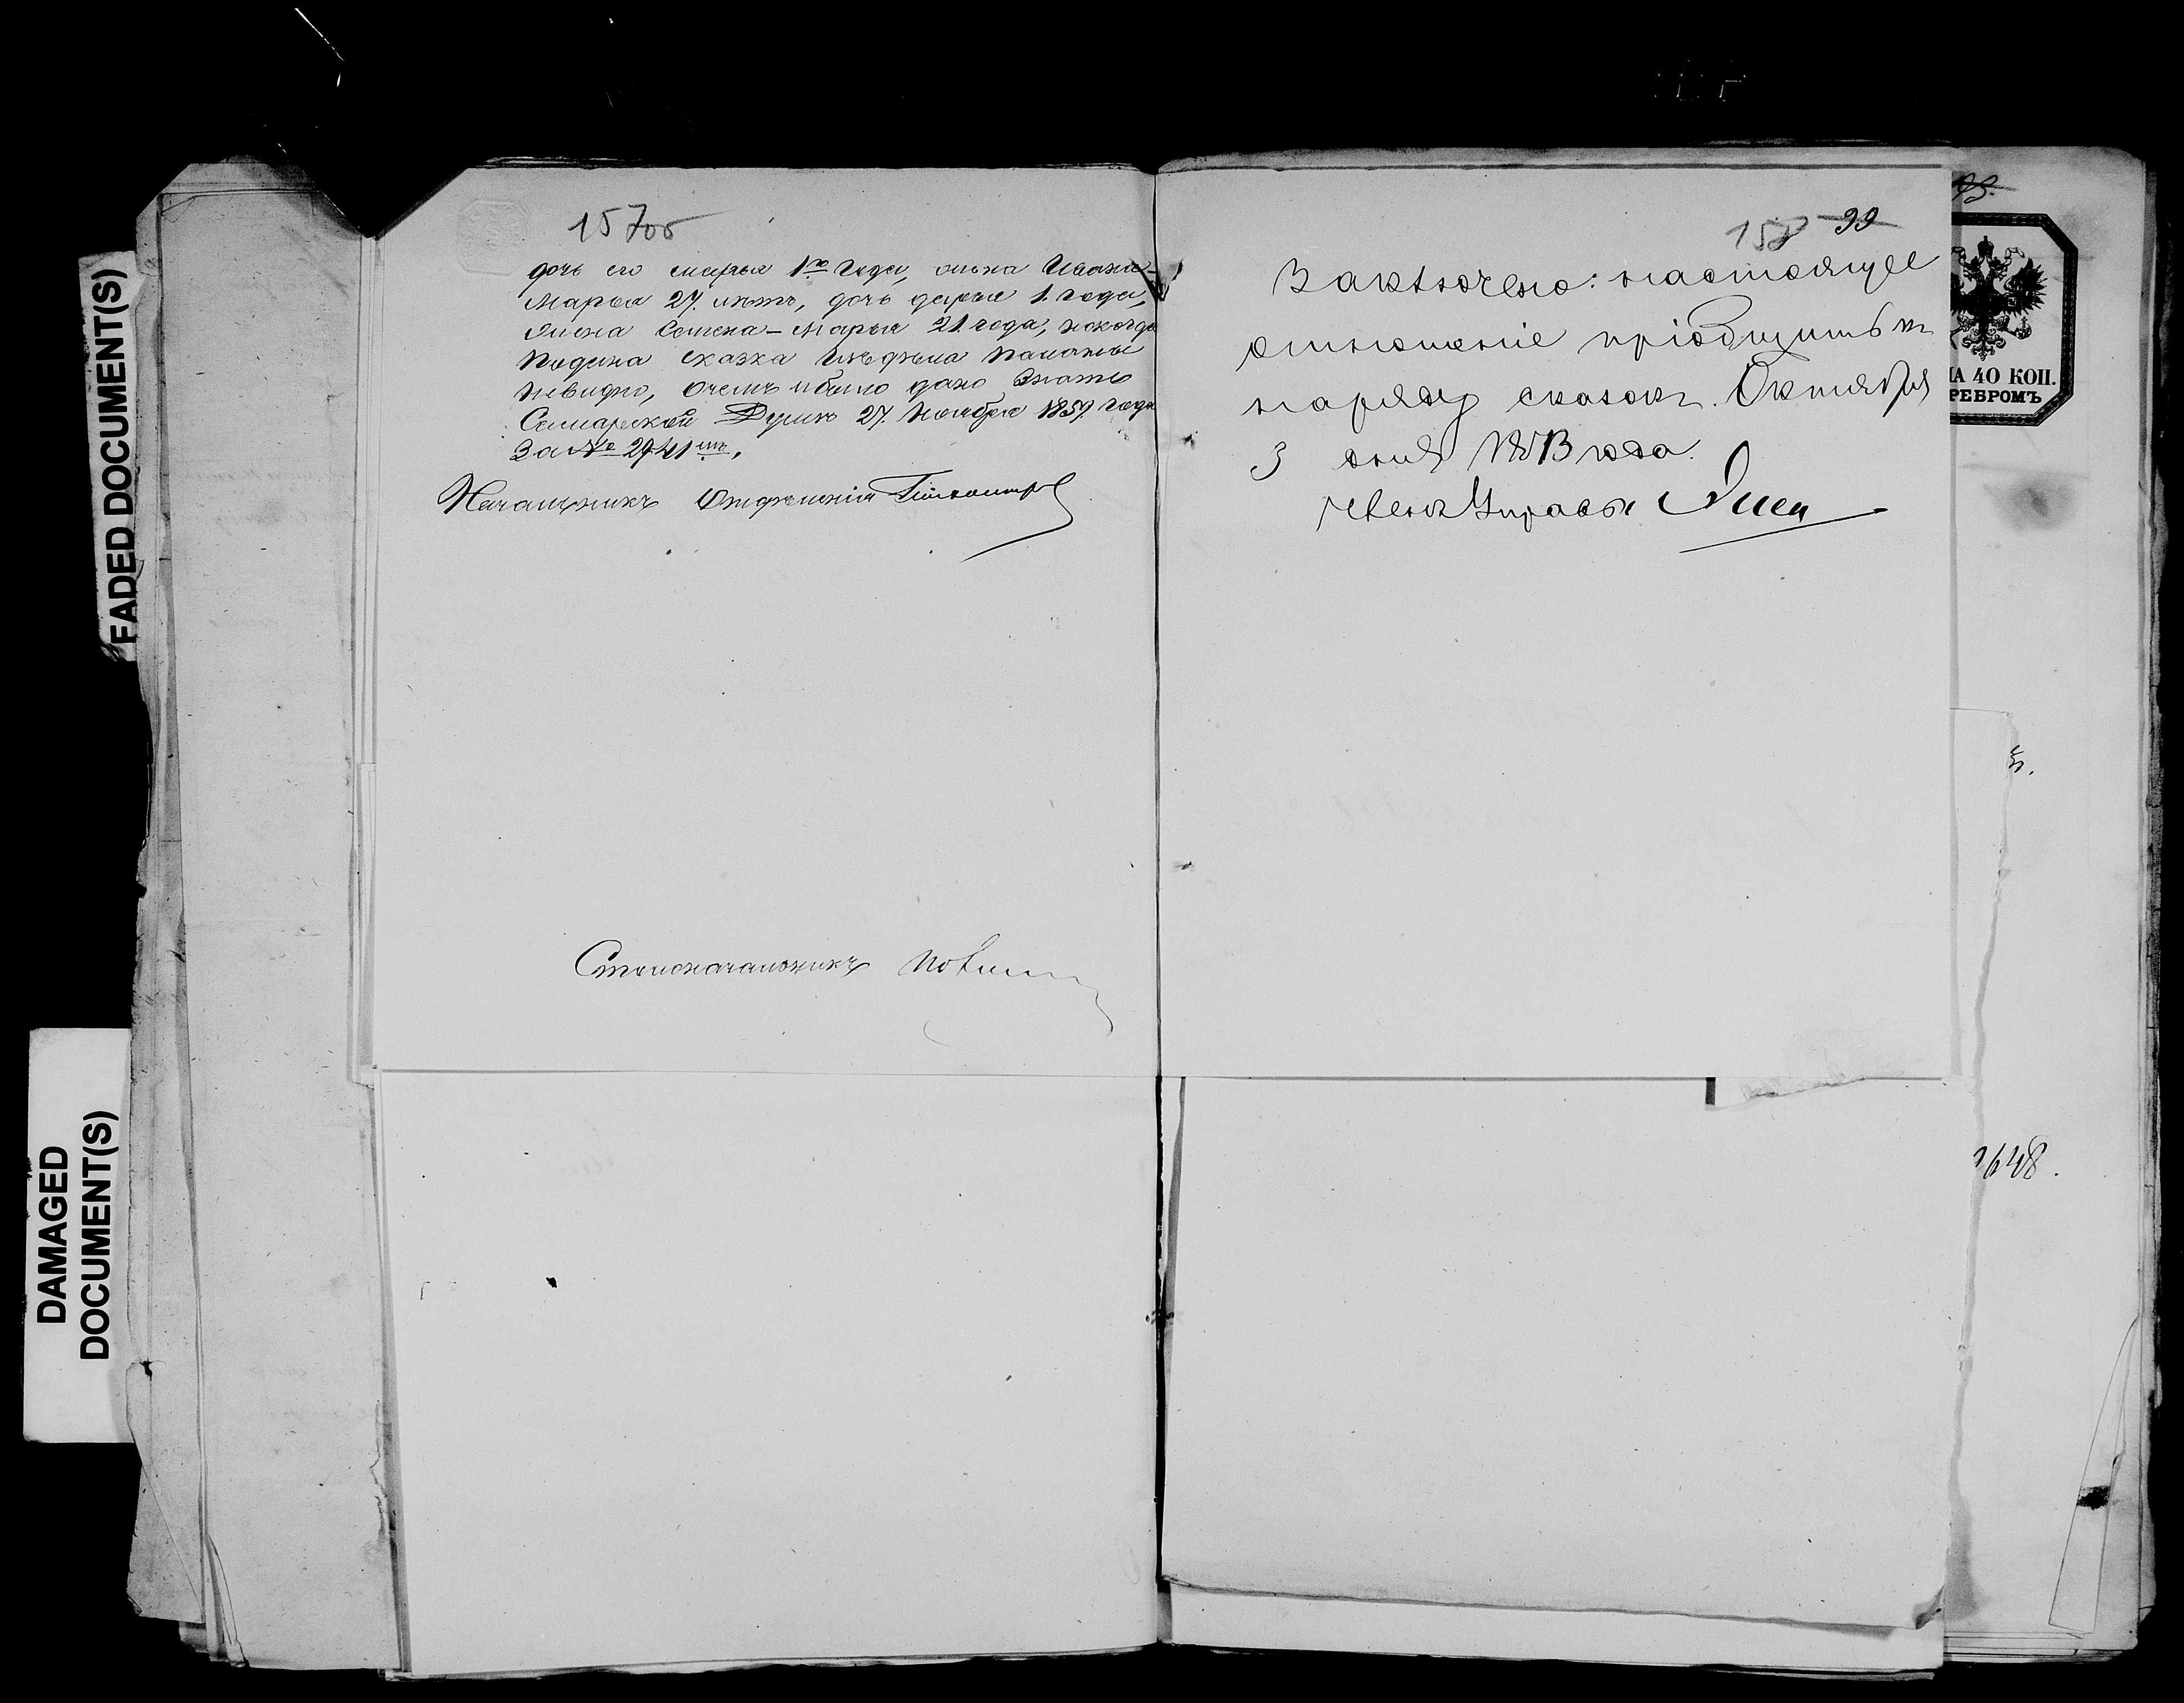 FADED DOCUMENT(S)
DAMAGED
DOCUMENT(S)
157об
дочь его Марья 1го Года, жена Ивана-
Марья 27. лѣтъ, дочь Дарья 1. года,
жена Семена - Марья 21 года, но когда
подана сказка изъ дѣла палаты
невидно, о чемъ и было дано знать
Самарской Думѣ 27. Ноября 1859 года
За № 2941мъ.
Начальникъ Отдѣленія
Столоначальникъ
158 99
Заключено: настоящее
отношеніе пріобщить къ
наряду сказокъ. Октября
3 дня 18 года.
Членъ Управы
НА 40 КОП.
РЕБРОМЪ
648.